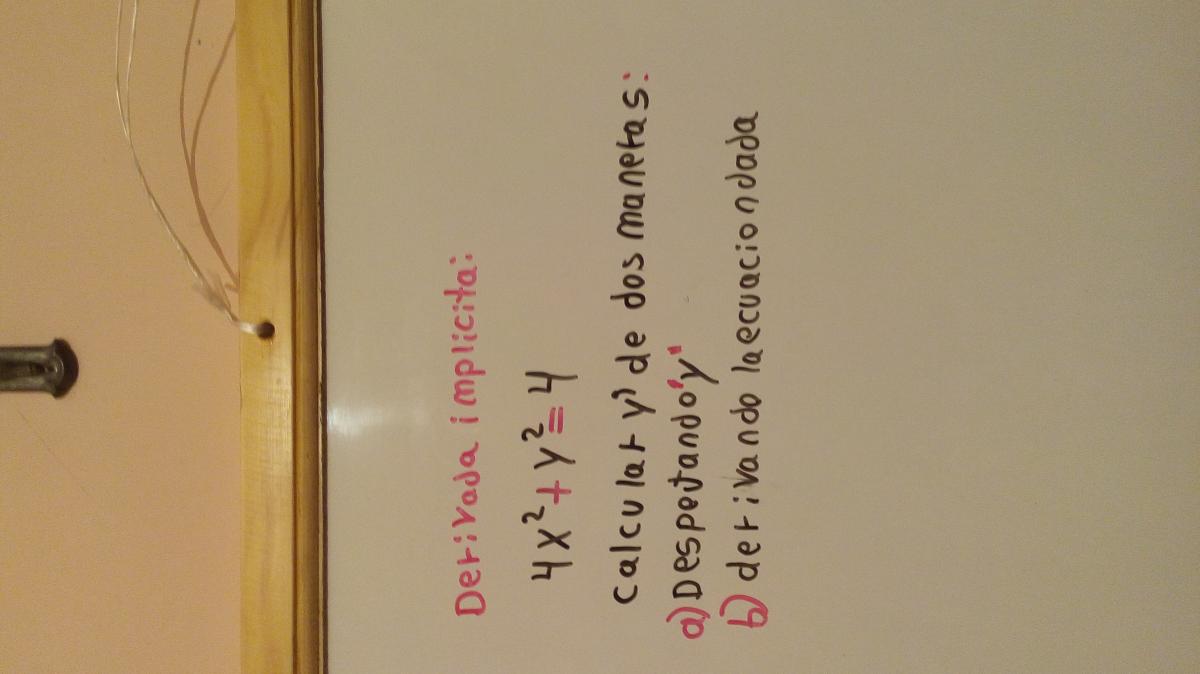 Derivada implicita:
4x²+y²=4
calcular y' de dos maneras:
a) Despejando 'y'
b) derivando la ecuacion dada